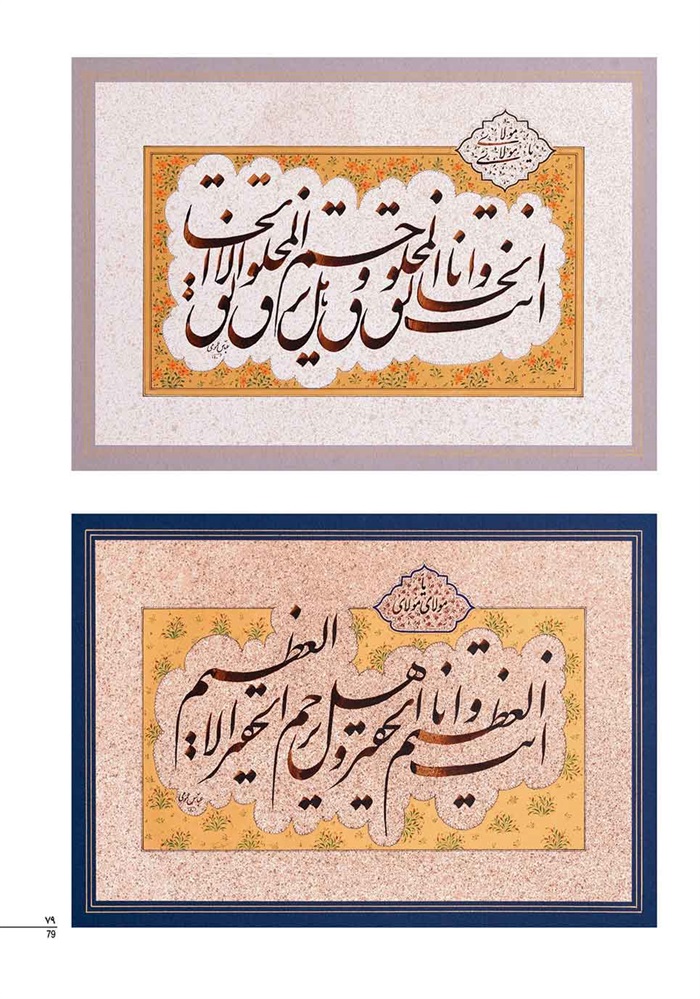 مولای یا مولای
انت الخالق و انا المخلوق و هل یرحم المخلوق الا الخالق
مولای یا مولای
انت العظیم و انا الحقیر و هل یرحم الحقیر الا العظیم
۷۹
79